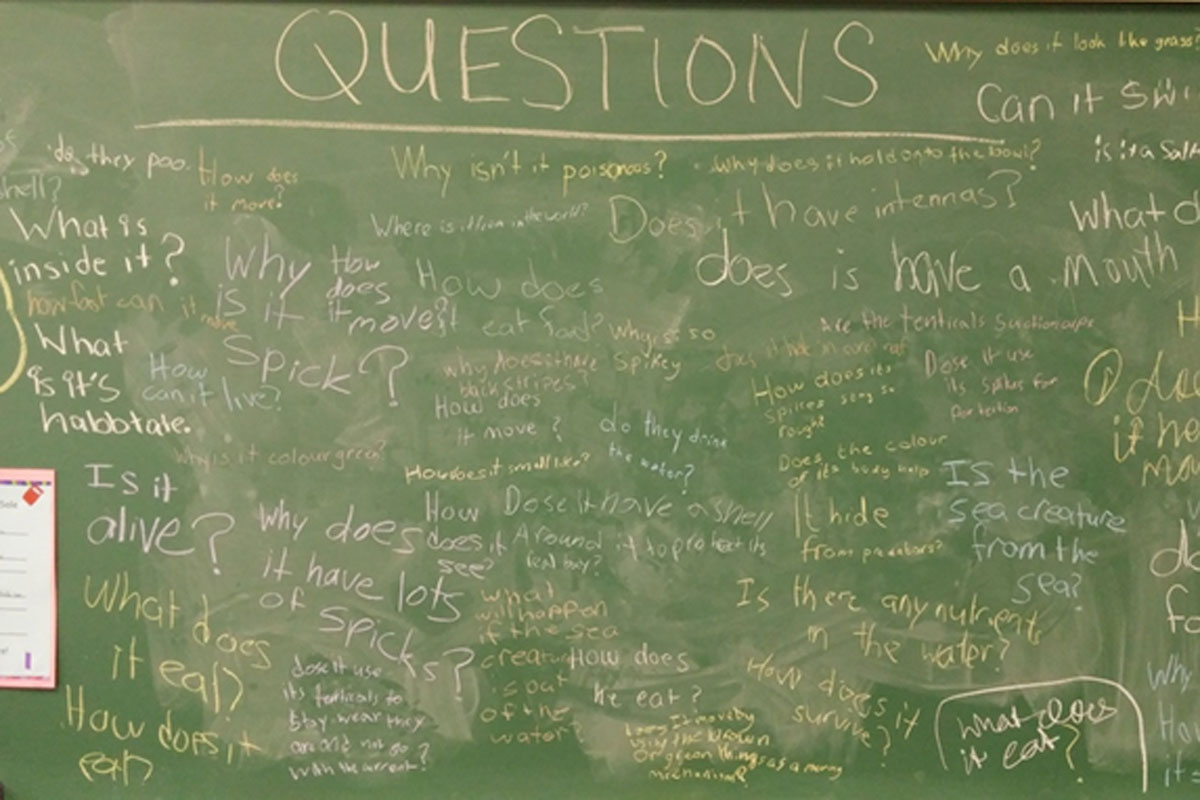 QUESTIONS
Why does it look like grass?
Can it
is it a
do they poo.
shell?
How does
it move?
Why isn't it poisonous?
Why does it hold onto the bowl?
What is
inside it?
Where is it from in the world?
Does it have intennas?
What
does is have a mouth
Why
is it
Spick?
How
does
it move?
How does
it eat food?
how fast can it move
What
is it's
habbtale.
How
can it live?
Why is so
Spikey
Are the tenticals suctioncups
why does it have
back stripes?
How does
it move?
How does its
spikes
rough?
Dose it use
its spikes for
do they drink
the water?
Why is it colour green?
How does it smell like?
Does the colour
of its body help
It hide
from predators?
Is the
sea creature
from the
sea?
Is it
alive?
Why does
it have lots
of
Spicks?
How
does it
see?
Dose it have a shell
Around it to protect its
What does
it eat?
what
will happen
if the sea
creature
is out
of the
water?
How does
he eat?
Is there any nutrients
in the water?
How does it
survive?
dose it use
its tenticals to
stay wear they
are and not go
with the current?
How does it
eat?
it move by
using the brown
Or green things as a moving
mechanism?
what does
it eat?
Why